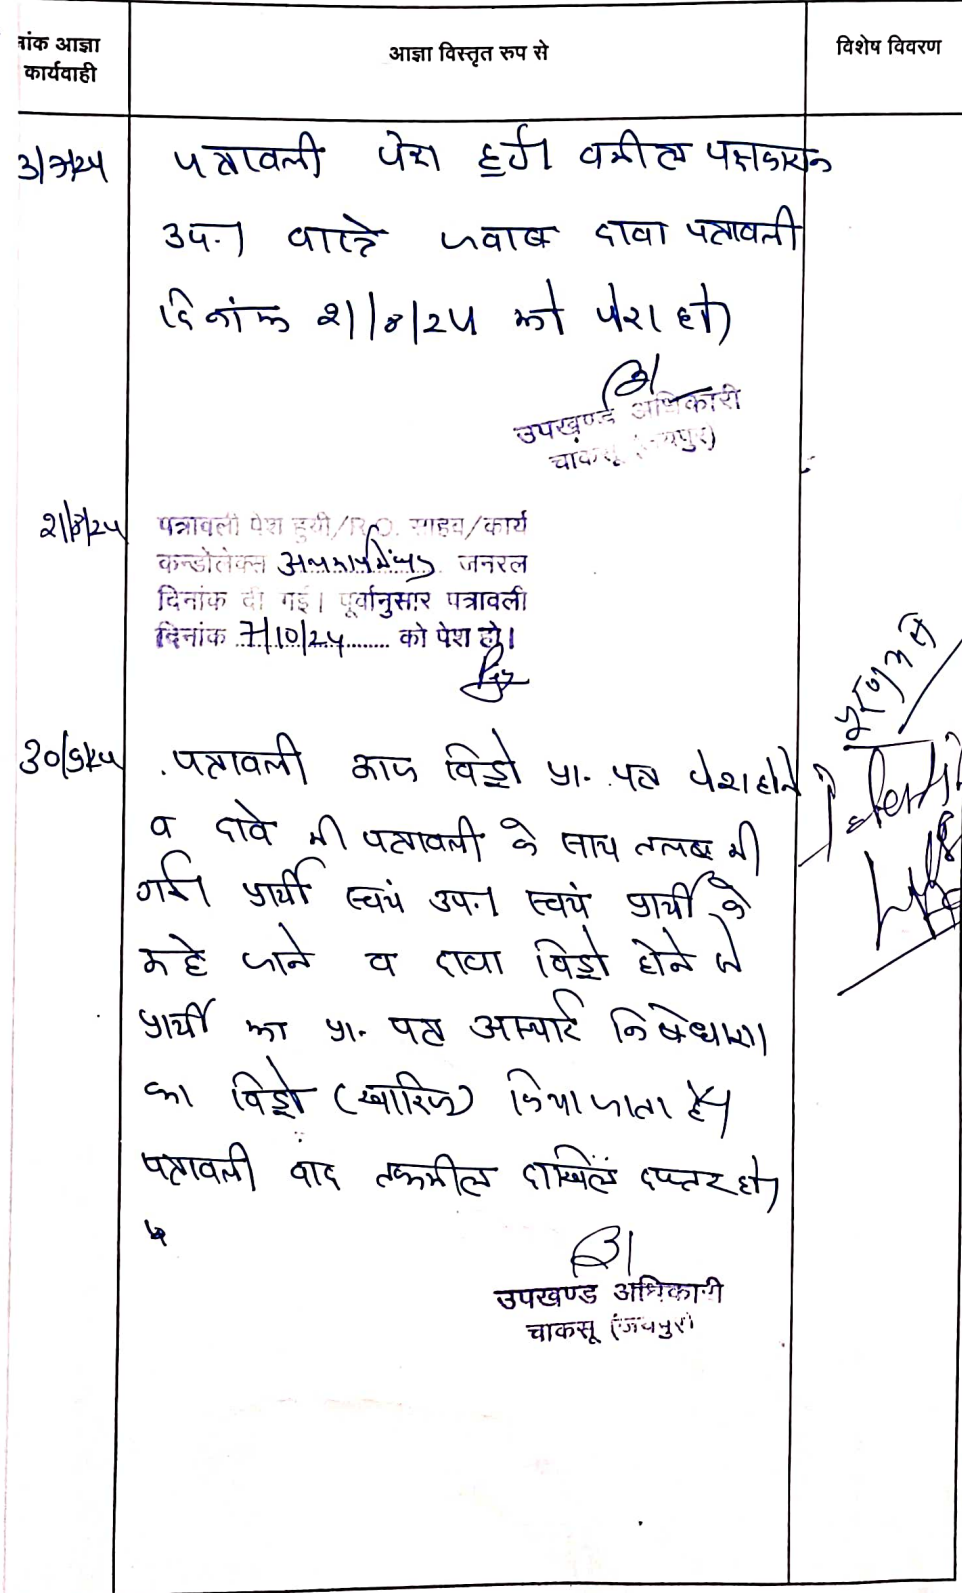 नांक आज्ञा
कार्यवाही
आज्ञा विस्तृत रुप से
विशेष विवरण
3/7/24 पत्रावली पेश हुई। वकील पक्षकारान
उप.। वास्ते जवाब दावा पत्रावली
दिनांक 21/8/24 को पेश हो।
उपखण्ड अधिकारी
चाकसू (जयपुर)
21/8/24 पत्रावली पेश हुयी/R.O. साहब/कार्य
कन्डोलेन्स जनरल
दिनांक दी गई। पूर्वानुसार पत्रावली
दिनांक 7/10/24 को पेश हो।
30/9/24 पत्रावली आज विड्रो प्रा. पत्र पेश होने
व दावे की पत्रावली के साथ तलब की
गई। प्रार्थी स्वयं उप.। स्वयं प्रार्थी के
कहे जाने व दावा विड्रो होने से
प्रार्थी का प्रा. पत्र अस्थाई निषेधाज्ञा
का विड्रो (खारिज) किया जाता है।
पत्रावली बाद तकमील दाखिल दफ्तर हो।
उपखण्ड अधिकारी
चाकसू (जयपुर)